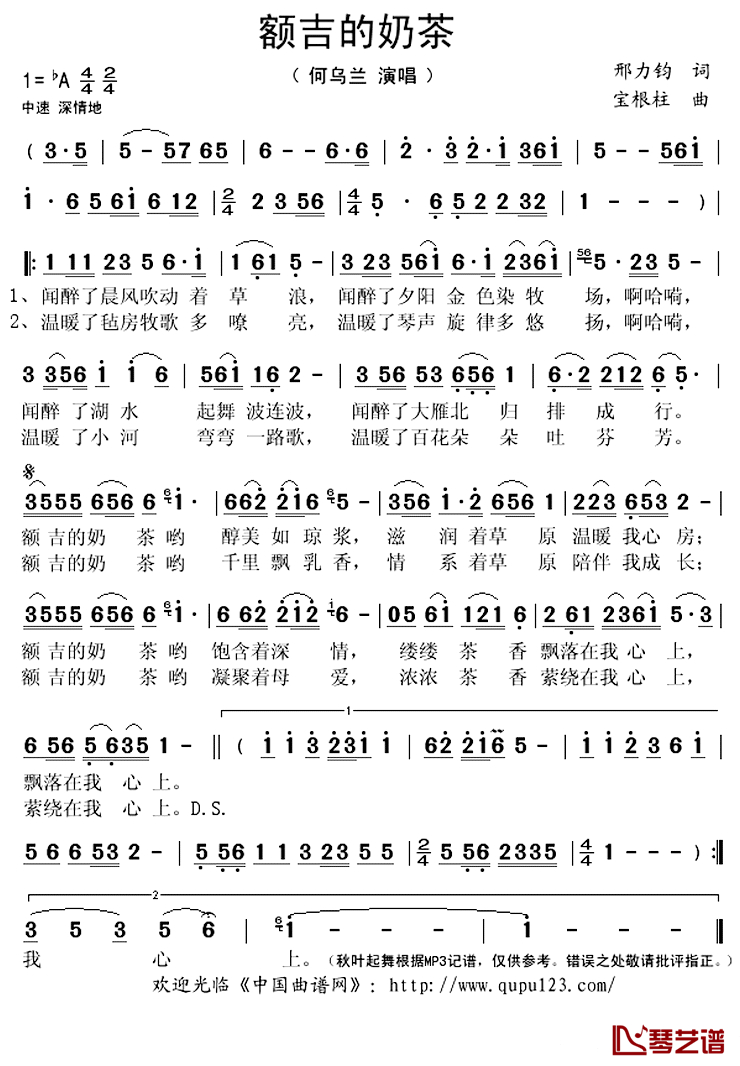 额吉的奶茶
（ 何乌兰 演唱 ）
邢力钧 词
宝根柱 曲
1= ♭A 4/4 2/4
中速 深情地
( 3·5 | 5 – 57 65 | 6 – – 6· | 2· 3 2·1 361 | 5 – – 561 |
1· 6 561 6 12 | 2/4 2 3 56 | 4/4 5· 6 5 2 2 32 | 1 – – ) |
‖: 1 11 23 5 6·1 | 1 61 5 – | 3 23 561 6·1 2361 | 56 5· 235 5 – |
1、闻醉了晨风吹动 着 草 浪， 闻醉了夕阳 金 色染 牧 场，啊哈嗬，
2、温暖了毡房牧歌 多 嘹 亮， 温暖了琴声 旋 律多 悠 扬，啊哈嗬，
3 356 1 1 6 | 561 16 2 – | 3 356 5 656 1 | 6·2 212 6 5· |
闻醉 了湖 水 起舞 波连波， 闻醉了大雁北 归 排 成 行。
温暖 了小 河 弯弯 一路歌， 温暖了百花朵 朵 吐 芬 芳。
3555 656 6 6 1· | 662 216 6 5 – | 356 1·2 656 1 | 223 653 2 – |
额 吉的奶 茶 哟 醇美 如 琼 浆， 滋 润 着草 原 温暖 我心 房；
额 吉的奶 茶 哟 千里 飘 乳 香， 情 系 着草 原 陪伴 我成 长；
3555 656 6 6 1· | 6 62 212 1 6 – | 05 61 121 6 | 2 61 2361 5·3 |
额 吉的奶 茶 哟 饱含着深 情， 缕缕 茶 香 飘落在我 心 上，
额 吉的奶 茶 哟 凝聚着母 爱， 浓浓 茶 香 萦绕在我 心 上，
1
6 56 5 635 1 – ‖ ( 1 1 3 231 1 | 62 216 5 – | 1 1 2 3 6 1 |
飘落在我 心 上。
萦绕在我 心 上。D.S.
5 6 6 53 2 – | 5 56 1 1 3 23 5 5 | 2/4 5 56 2335 | 4/4 1 – – ) :‖
2
3 5 3 5 6 | 6 1 – – – 1 – – – ‖
我 心 上。（秋叶起舞根据MP3记谱，仅供参考。错误之处敬请批评指正。）
欢迎光临《中国曲谱网》：http://www.qupu123.com/
琴艺谱